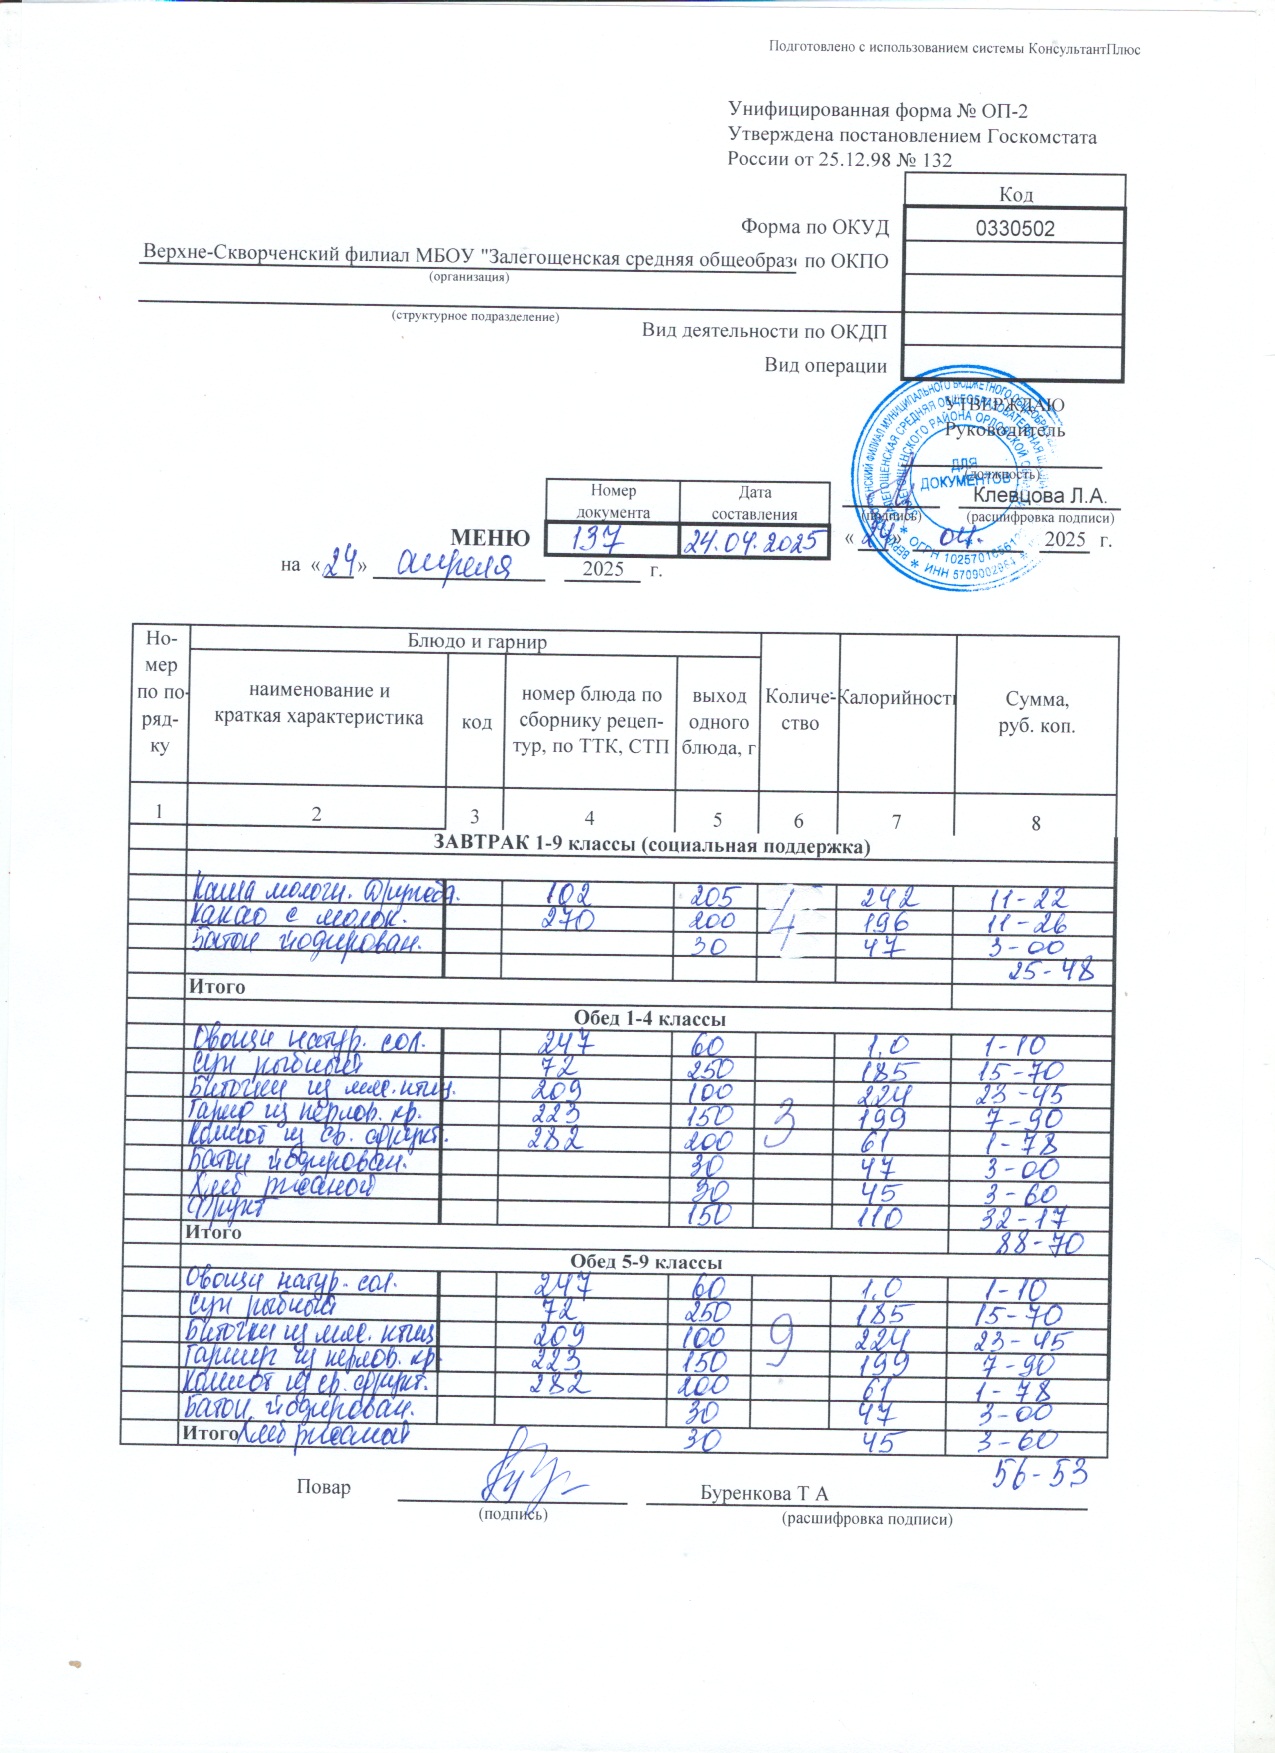 Подготовлено с использованием системы КонсультантПлюс
Унифицированная форма № ОП-2
Утверждена постановлением Госкомстата
России от 25.12.98 № 132
Код
Форма по ОКУД 0330502
Верхне-Скворченский филиал МБОУ "Залегощенская средняя общеобразо по ОКПО
(организация)
(структурное подразделение)
Вид деятельности по ОКДП
Вид операции
УТВЕРЖДАЮ
Руководитель
(должность)
ДЛЯ
ДОКУМЕНТОВ
Клевцова Л.А.
(подпись) (расшифровка подписи)
Номер документа Дата составления
МЕНЮ 137 24.04.2025 « 24 » 04. 2025 г.
на «24» апреля 2025 г.
Но-мер по по-ряд-ку Блюдо и гарнир Количе-ство Калорийность Сумма, руб. коп.
наименование и краткая характеристика код номер блюда по сборнику рецеп-тур, по ТТК, СТП выход одного блюда, г
1 2 3 4 5 6 7 8
ЗАВТРАК 1-9 классы (социальная поддержка)
Каша молочн. Дружба. 102 205 242 11-22
Какао с молок. 270 200 4 196 11-26
Батон йодирован. 30 47 3-00
25-48
Итого
Обед 1-4 классы
Овощи натур. сол. 247 60 1,0 1-10
Суп рыбный 72 250 185 15-70
Биточки из мяс. птиц. 209 100 224 23-45
Гарнир из перлов. кр. 223 150 3 199 7-90
Компот из св. фрукт. 282 200 61 1-78
Батон йодирован. 30 47 3-00
Хлеб ржаной 30 45 3-60
Фрукт 150 110 32-17
Итого 88-70
Обед 5-9 классы
Овощи натур. сол. 247 60 1,0 1-10
Суп рыбный 72 250 185 15-70
Биточки из мяс. птиц 209 100 9 224 23-45
Гарнир из перлов. кр. 223 150 199 7-90
Компот из св. фрукт. 282 200 61 1-78
Батон йодирован. 30 47 3-00
Итого Хлеб ржаной 30 45 3-60
56-53
Повар Буренкова Т А
(подпись) (расшифровка подписи)